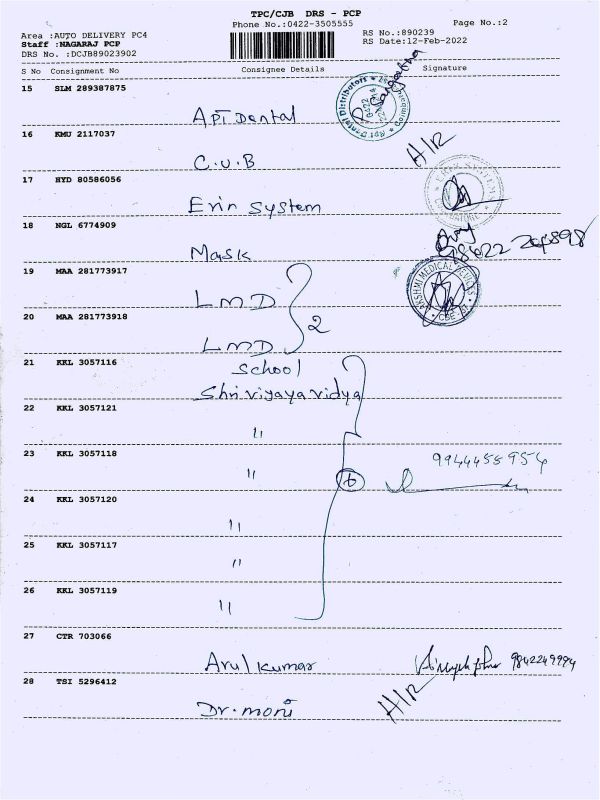 TPC/CJB DRS - PCP
Phone No.:0422-3505555
Page No.:2
Area :AUTO DELIVERY PC4
RS No.:890239
Staff :NAGARAJ PCP
RS Date:12-Feb-2022
DRS No. :DCJB89023902
S No Consignment No Consignee Details Signature
15 SLM 289387875
Api Dental
16 KMU 2117037
C.U.B
H/R
17 HYD 80586056
Erin System
18 NGL 6774909
Mask
19 MAA 281773917
LMD
2
20 MAA 281773918
LMD
21 KKL 3057116
School
Shri vijaya vidya
22 KKL 3057121
"
23 KKL 3057118
9944455954
"
6
24 KKL 3057120
"
25 KKL 3057117
"
26 KKL 3057119
"
27 CTR 703066
Arul kumar
9842249994
28 TSI 5296412
Dr. moni
H/R